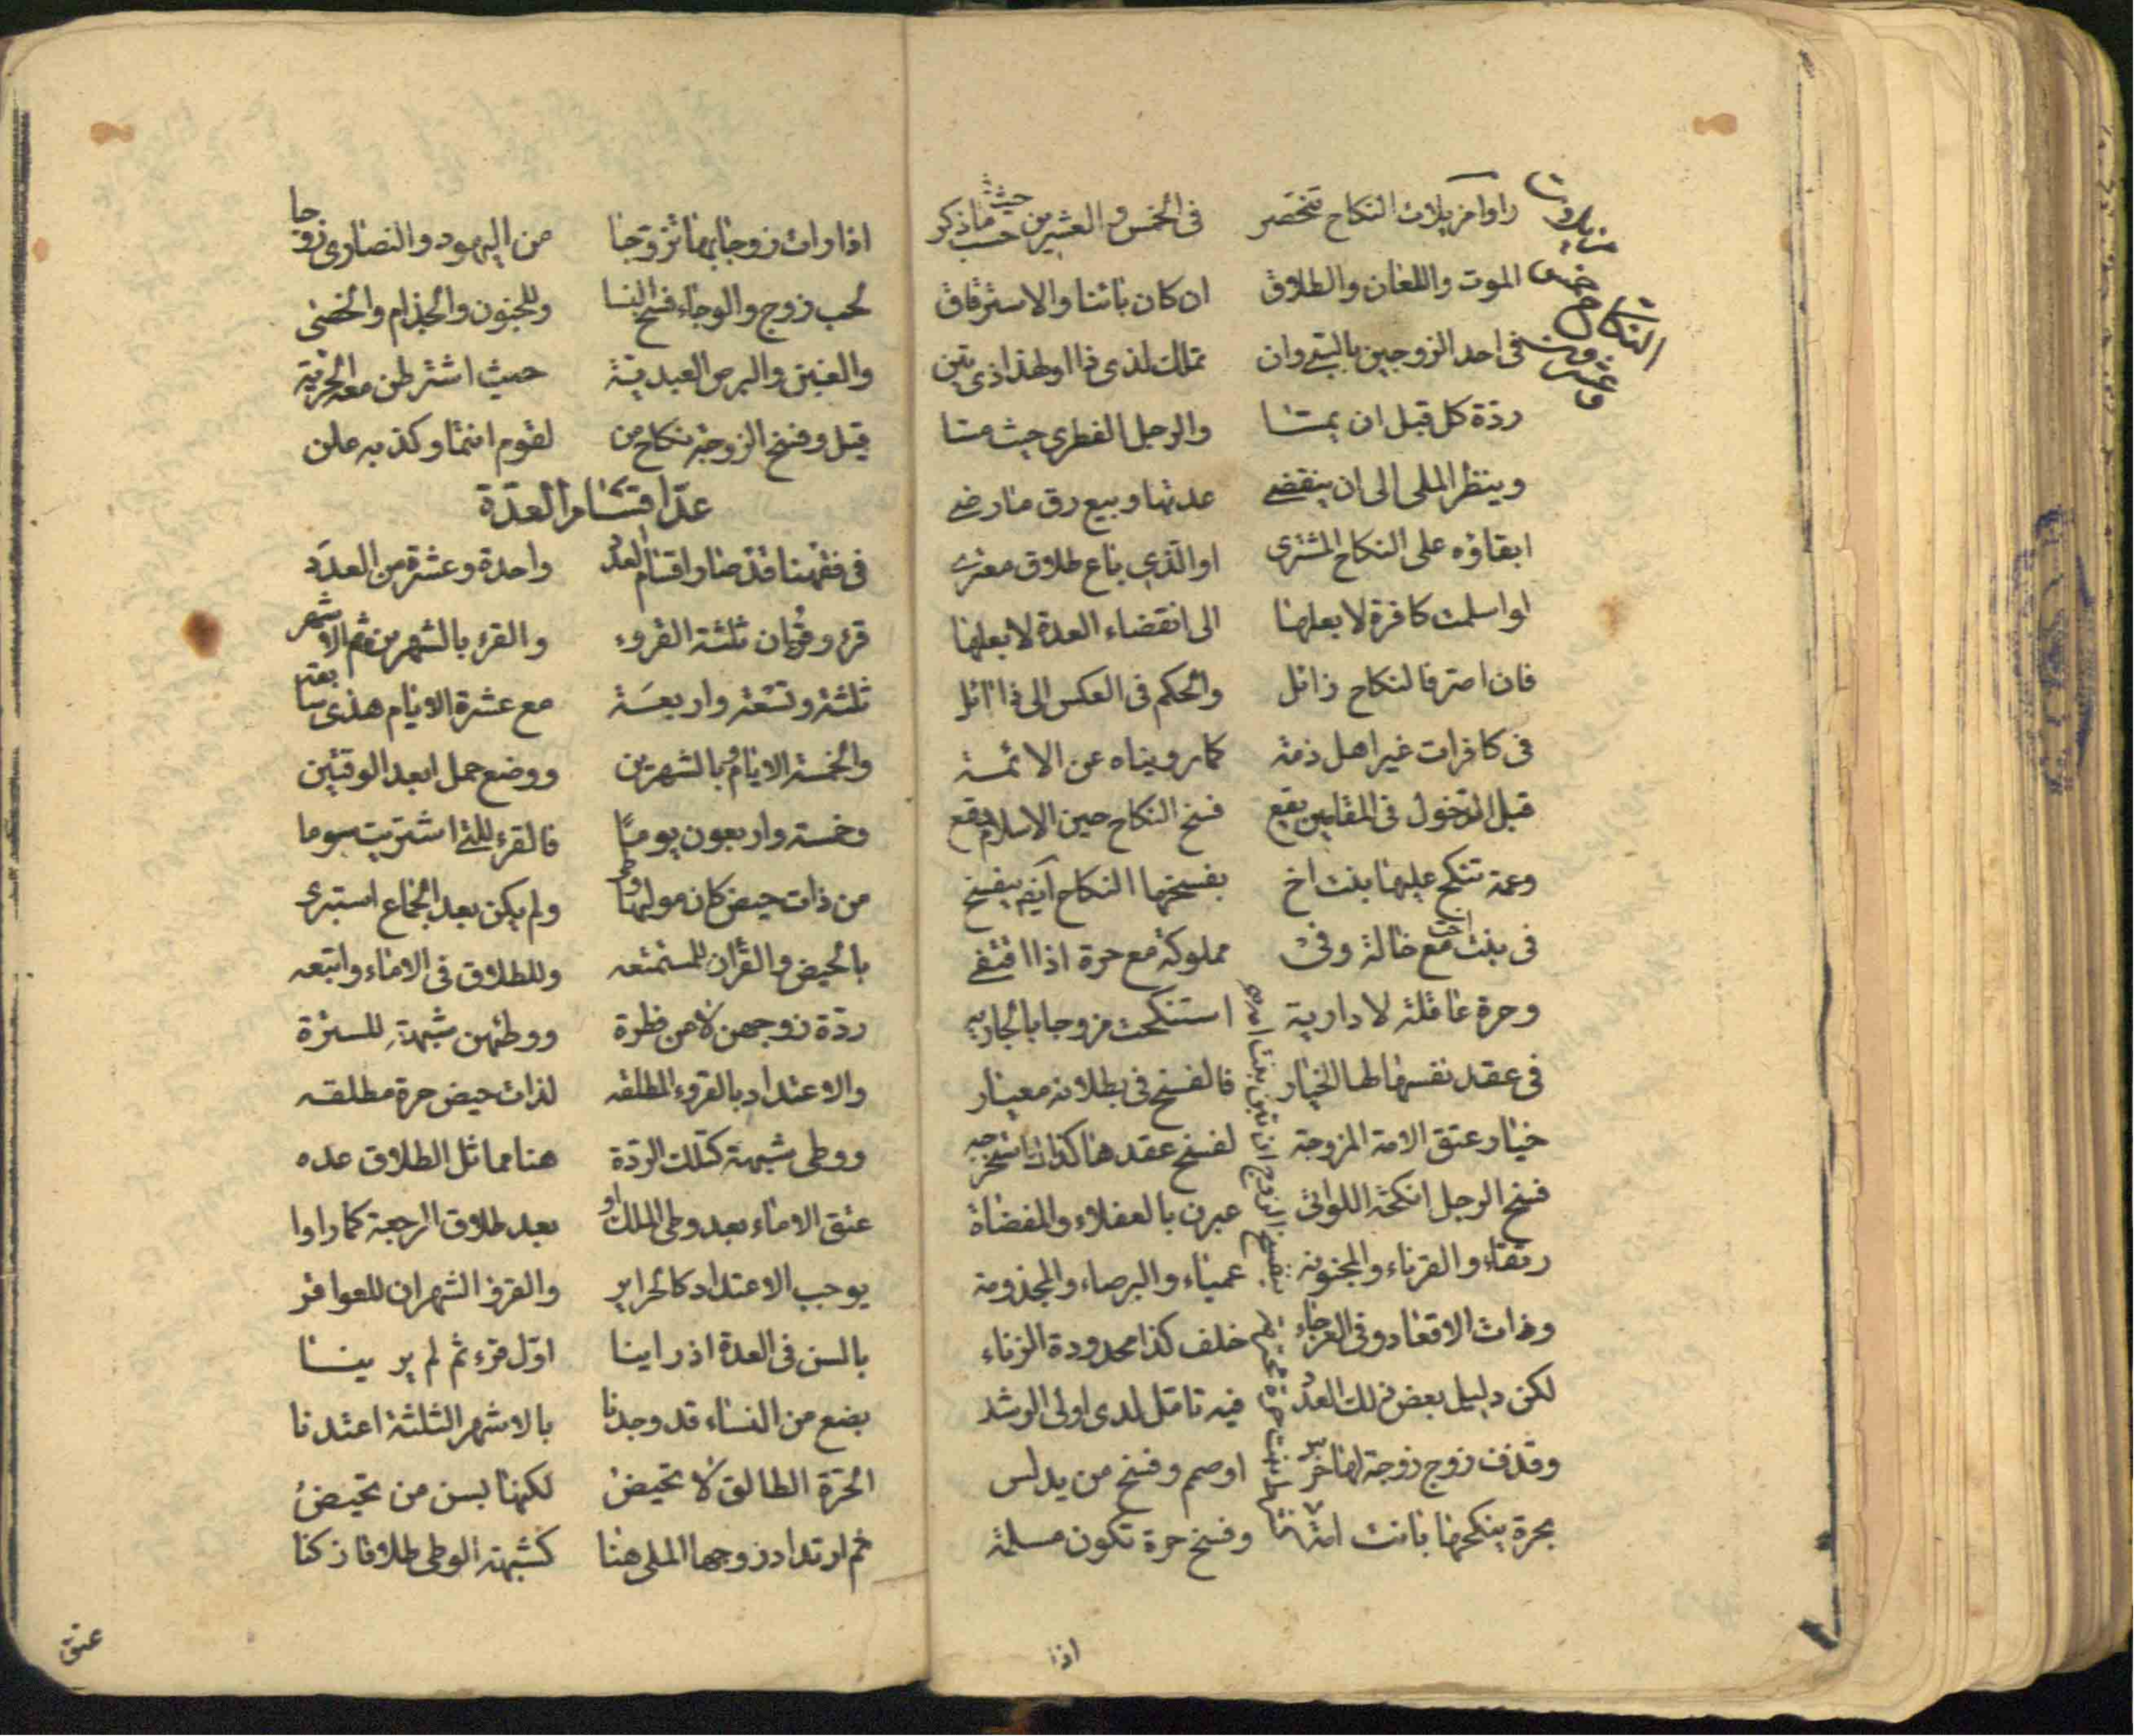 مزيلات النكاح خمس وعشرون
راوا مزيلات النكاح تنحصر في الخمس والعشرين من حيث ما ذكر
الموت واللعان والطلاق ان كان بائنا والاسترقاق
في احد الزوجين بالسبي وان تملك لذي ذا او لهذا ذي يبن
ردة كل قبل ان يمسا والرجل الفطري حيث مسا
وينظر الملي الى ان ينقضي عدتها وبيع رق ما رضي
ابقاؤه على النكاح المشتري او الذي باع طلاق معتري
او اسلمت كافرة لا بعلها الى انقضاء العدة لا بعلها
فان اصر فالنكاح زائل والحكم في العكس الى ذا ائل
في كافرات غير اهل ذمة كما رويناه عن الائمة
قبل الدخول في المقامين يقع فسخ النكاح حين الاسلام يقع
وعمة تنكح عليها بنت اخ بفسخها النكاح ينفسخ
في بنت اخت مع خالة وفي مملوكة مع حرة اذا اقتفي
وحرة عاقلة لا دارية استنكحت مزوجا بالجارية
في عقد نفسها لها الخيار فالفسخ في بطلانه معيار
خيار عتق الامة المزوجة لفسخ عقدها كذاك
فسخ الرجل انكحة اللواتي عبرن بالعفلاء والمفضاة
رتقاء والقرناء والمجنونة عمياء والبرصاء والمجذومة
وذات الاقعاد وفي العرجاء خلف كذا محدودة الزناء
لكن دليل بعض ذلك العدد فيه تامل لدى اولى الرشد
وقذف زوج زوجة لها خرس او صمم وفسخ من يدلس
بحرة ينكحها بانت امة وفسخ حرة تكون مسلمة
اذا
اذا رات زوجا بها تزوجا من اليهود والنصارى زوجا
لجب زوج والوجاء فسخ النسا وللجنون والجذام والخصى
والعنين والبرص العبدية حيث اشترطن معه الحرية
قيل وفسخ الزوجة نكاح من لقوم انتما وكذبه علن
عد اقسام العدة
في فقهنا قد صنا واقسام العدد واحدة وعشرة من العدد
قرء وقرءان ثلثة القروء والقرء بالشهرين ثم الاشهر
ثلثة وتسعة واربعة مع عشرة الايام هذى سابقة
والخمسة الايام وبالشهرين ووضع حمل ابعد الوقتين
وخمسة واربعون يوما فالقرء للتي اشتريت سوما
من ذات حيض كان موليها وطى ولم يكن بعد الجماع استبرى
بالحيض والقرآن للمستمتعه وللطلاق في الاماء واتبعه
ردة زوجهن لا من فطرة ووطئهن شبهة للسترة
والاعتداد بالقروء المطلقه لذات حيض حرة مطلقه
ووطى شبهة كتلك الردة هنا مماثل الطلاق عده
عتق الاماء بعد وطى الملك او بعد طلاق الرجعة كما راوا
يوجب الاعتداد كالحراير والقرء الشهران للعواقر
بالسن في العدة اذ راينا اول قرء ثم لم ير ينسا
بضع من النساء قد وجدنا بالاشهر الثلثة اعتدنا
الحرة الطالق لا تحيض لكنها بسن من تحيض
ثم ارتداد زوجها الملي هنا كشبهة الوطى طلاقا زكنا
عتق